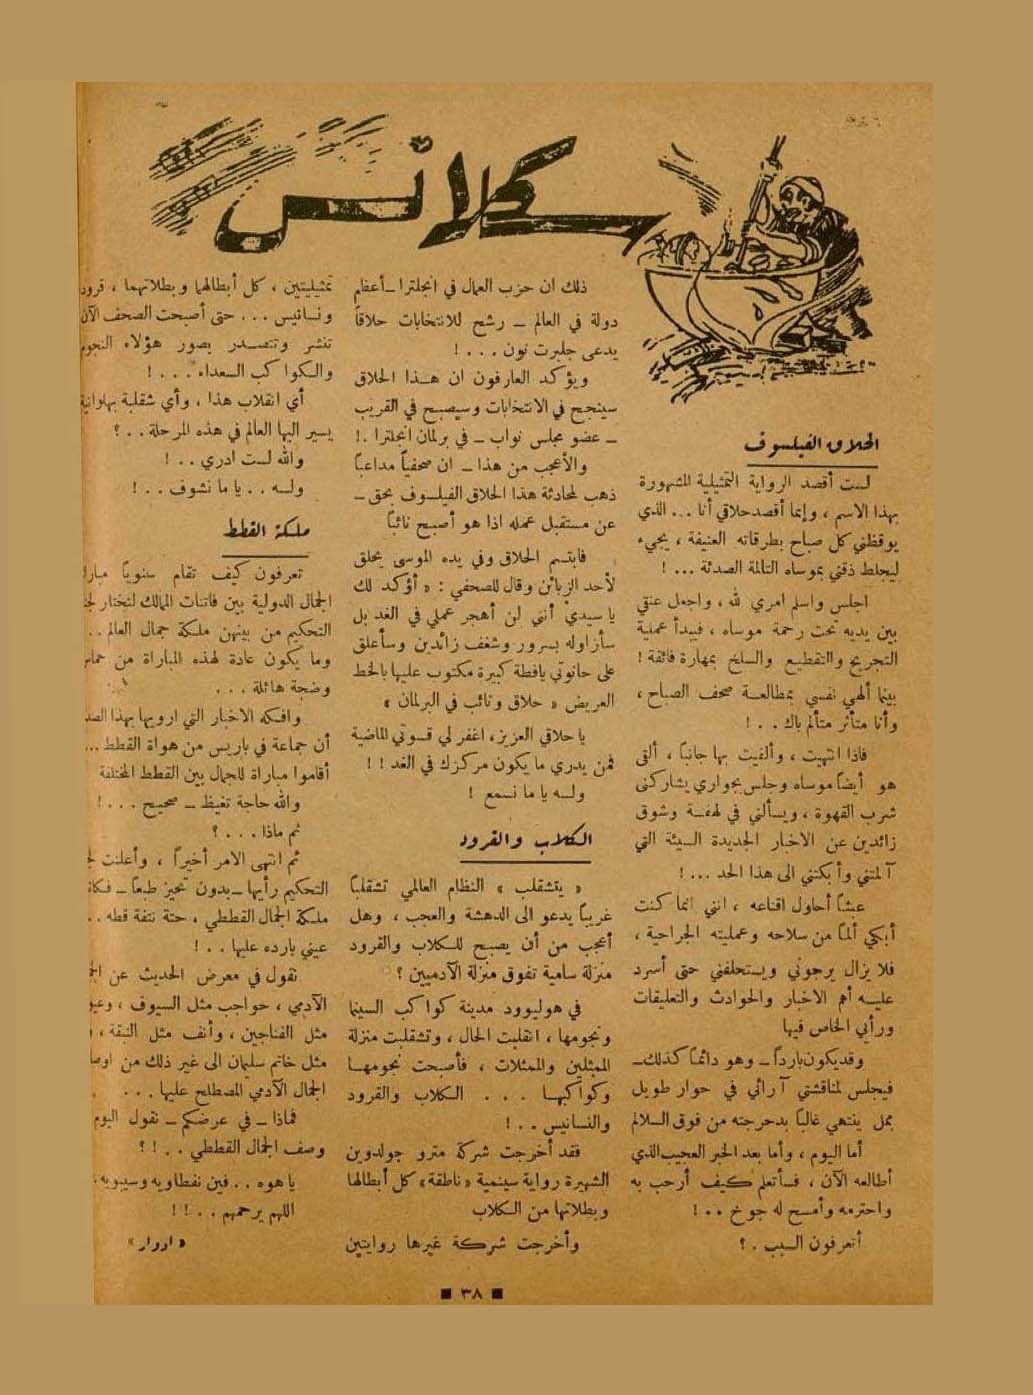 سكلانس
الحلاق الفيلسوف
لست أقصد الرواية التمثيلية المشهورة
بهذا الاسم ، وإنما أقصد حلاقي أنا ... الذي
يوقظني كل صباح بطرقاته العنيفة ، يجيء
ليجلط ذقني بموساه التالمة الصدئة ... !
اجلس واسلم امري لله ، واجعل عنقي
بين يديه تحت رحمة موساه ، فيبدأ عملية
التجريح والتقطيع والسلخ بمهارة فائقة !
بينما ألهي نفسي بمطالعة صحف الصباح ،
وأنا متأثر متألم باك . . !
فاذا انتهيت ، وألقيت بها جانباً ، ألقى
هو أيضاً موساه وجلس بجواري يشاركنى
شرب القهوة ، ويسألني في لهفة وشوق
زائدين عن الاخبار الجديدة السيئة التي
آلمتني وأبكتني الى هذا الحد ... !
عبثاً أحاول اقناعه ، انني انما كنت
أبكي ألماً من سلاحه وعمليته الجراحية ،
فلا يزال يرجوني ويستحلفني حتى أسرد
عليه أهم الاخبار والحوادث والتعليقات
ورأيي الخاص فيها
وقد يكون بارداً ــ وهو دائماً كذلك ــ
فيجلس لمناقشتي آرائي في حوار طويل
ممل ينتهي غالباً بدحرجته من فوق السلالم
أما اليوم ، وأما بعد الخبر العجيب الذي
أطالعه الآن ، فسأتعلم كيف أرحب به
واحترمه وأمسح له جوخ . . !
أتعرفون السبب . ؟
ذلك ان حزب العمال في انجلترا ــ أعظم
دولة في العالم ــ رشح للانتخابات حلاقاً
يدعى جلبرت نون . . . !
ويؤكد العارفون ان هذا الحلاق
سينجح في الانتخابات وسيصبح في القريب
ــ عضو مجلس نواب ــ في برلمان انجلترا . !
والأعجب من هذا ــ ان صحفياً مداعباً
ذهب لمحادثة هذا الحلاق الفيلسوف بحق ــ
عن مستقبل عمله اذا هو أصبح نائباً
فابتسم الحلاق وفي يده الموسى يحلق
لأحد الزبائن وقال للصحفي : « أؤكد لك
يا سيدي أنني لن أهجر عملي في الغد بل
سأزاوله بسرور وشغف زائدين وسأعلق
على حانوتي يافطة كبيرة مكتوب عليها بالخط
العريض « حلاق ونائب في البرلمان »
يا حلاقي العزيز ، اغفر لي قسوتي الماضية
فمن يدري ما يكون مركزك في الغد ! !
ولسه يا ما نسمع !
الكلاب والقرود
« يتشقلب » النظام العالمي تشقلباً
غريباً يدعو الى الدهشة والعجب ، وهل
أعجب من أن يصبح للكلاب والقرود
منزلة سامية تفوق منزلة الآدميين ؟
في هوليوود مدينة كواكب السينما
ونجومها ، انقلبت الحال ، وتشقلبت منزلة
الممثلين والممثلات ، فأصبحت نجومها
وكواكبها . . . الكلاب والقرود
والنسانيس . . !
فقد أخرجت شركة مترو جولدوين
الشهيرة رواية سينمية « ناطقة » كل أبطالها
وبطلاتها من الكلاب
وأخرجت شركة غيرها روايتين
تمثيليتين ، كل أبطالهما وبطلاتهما ، قرود
ونسانيس ... حتى أصبحت الصحف الآن
تنشر وتتصدر بصور هؤلاء النجوم
والكواكب السعداء . . . !
أي انقلاب هذا ، وأي شقلبة بهلوانية
يسير اليها العالم في هذه المرحلة . . ؟
والله لست ادري . . !
ولسه . . يا ما نشوف . . !
ملكة القطط
تعرفون كيف تقام سنوياً
الجمال الدولية بين فاتنات الممالك لتختار
التحكيم من بينهن ملكة جمال العالم . .
وما يكون عادة لهذه المباراة من
وضجة هائلة . . .
وافكه الاخبار التي ارويها بهذا
أن جماعة في باريس من هواة القطط ...
أقاموا مباراة للجمال بين القطط المختلفة
والله حاجة تغيظ ــ صحيح . . . !
ثم ماذا . . . ؟
ثم انتهى الامر أخيراً ، وأعلنت
التحكيم رأيها ــ بدون تحيز طبعاً ــ
ملكة الجمال القططي ، حتة نتفة قطه . .
عيني بارده عليها . . !
نقول في معرض الحديث عن
الآدمي ، حواجب مثل السيوف ،
مثل الفناجين ، وأنف مثل النبقة ،
مثل خاتم سليمان الى غير ذلك من
الجمال الآدمي المصطلح عليها . . .
فماذا ــ في عرضكم ــ نقول اليوم
وصف الجمال القططي . . ! ؟
يا هوه . . فين نفطاويه وسيبويه .
اللهم يرحمهم . . ! !
٣٨